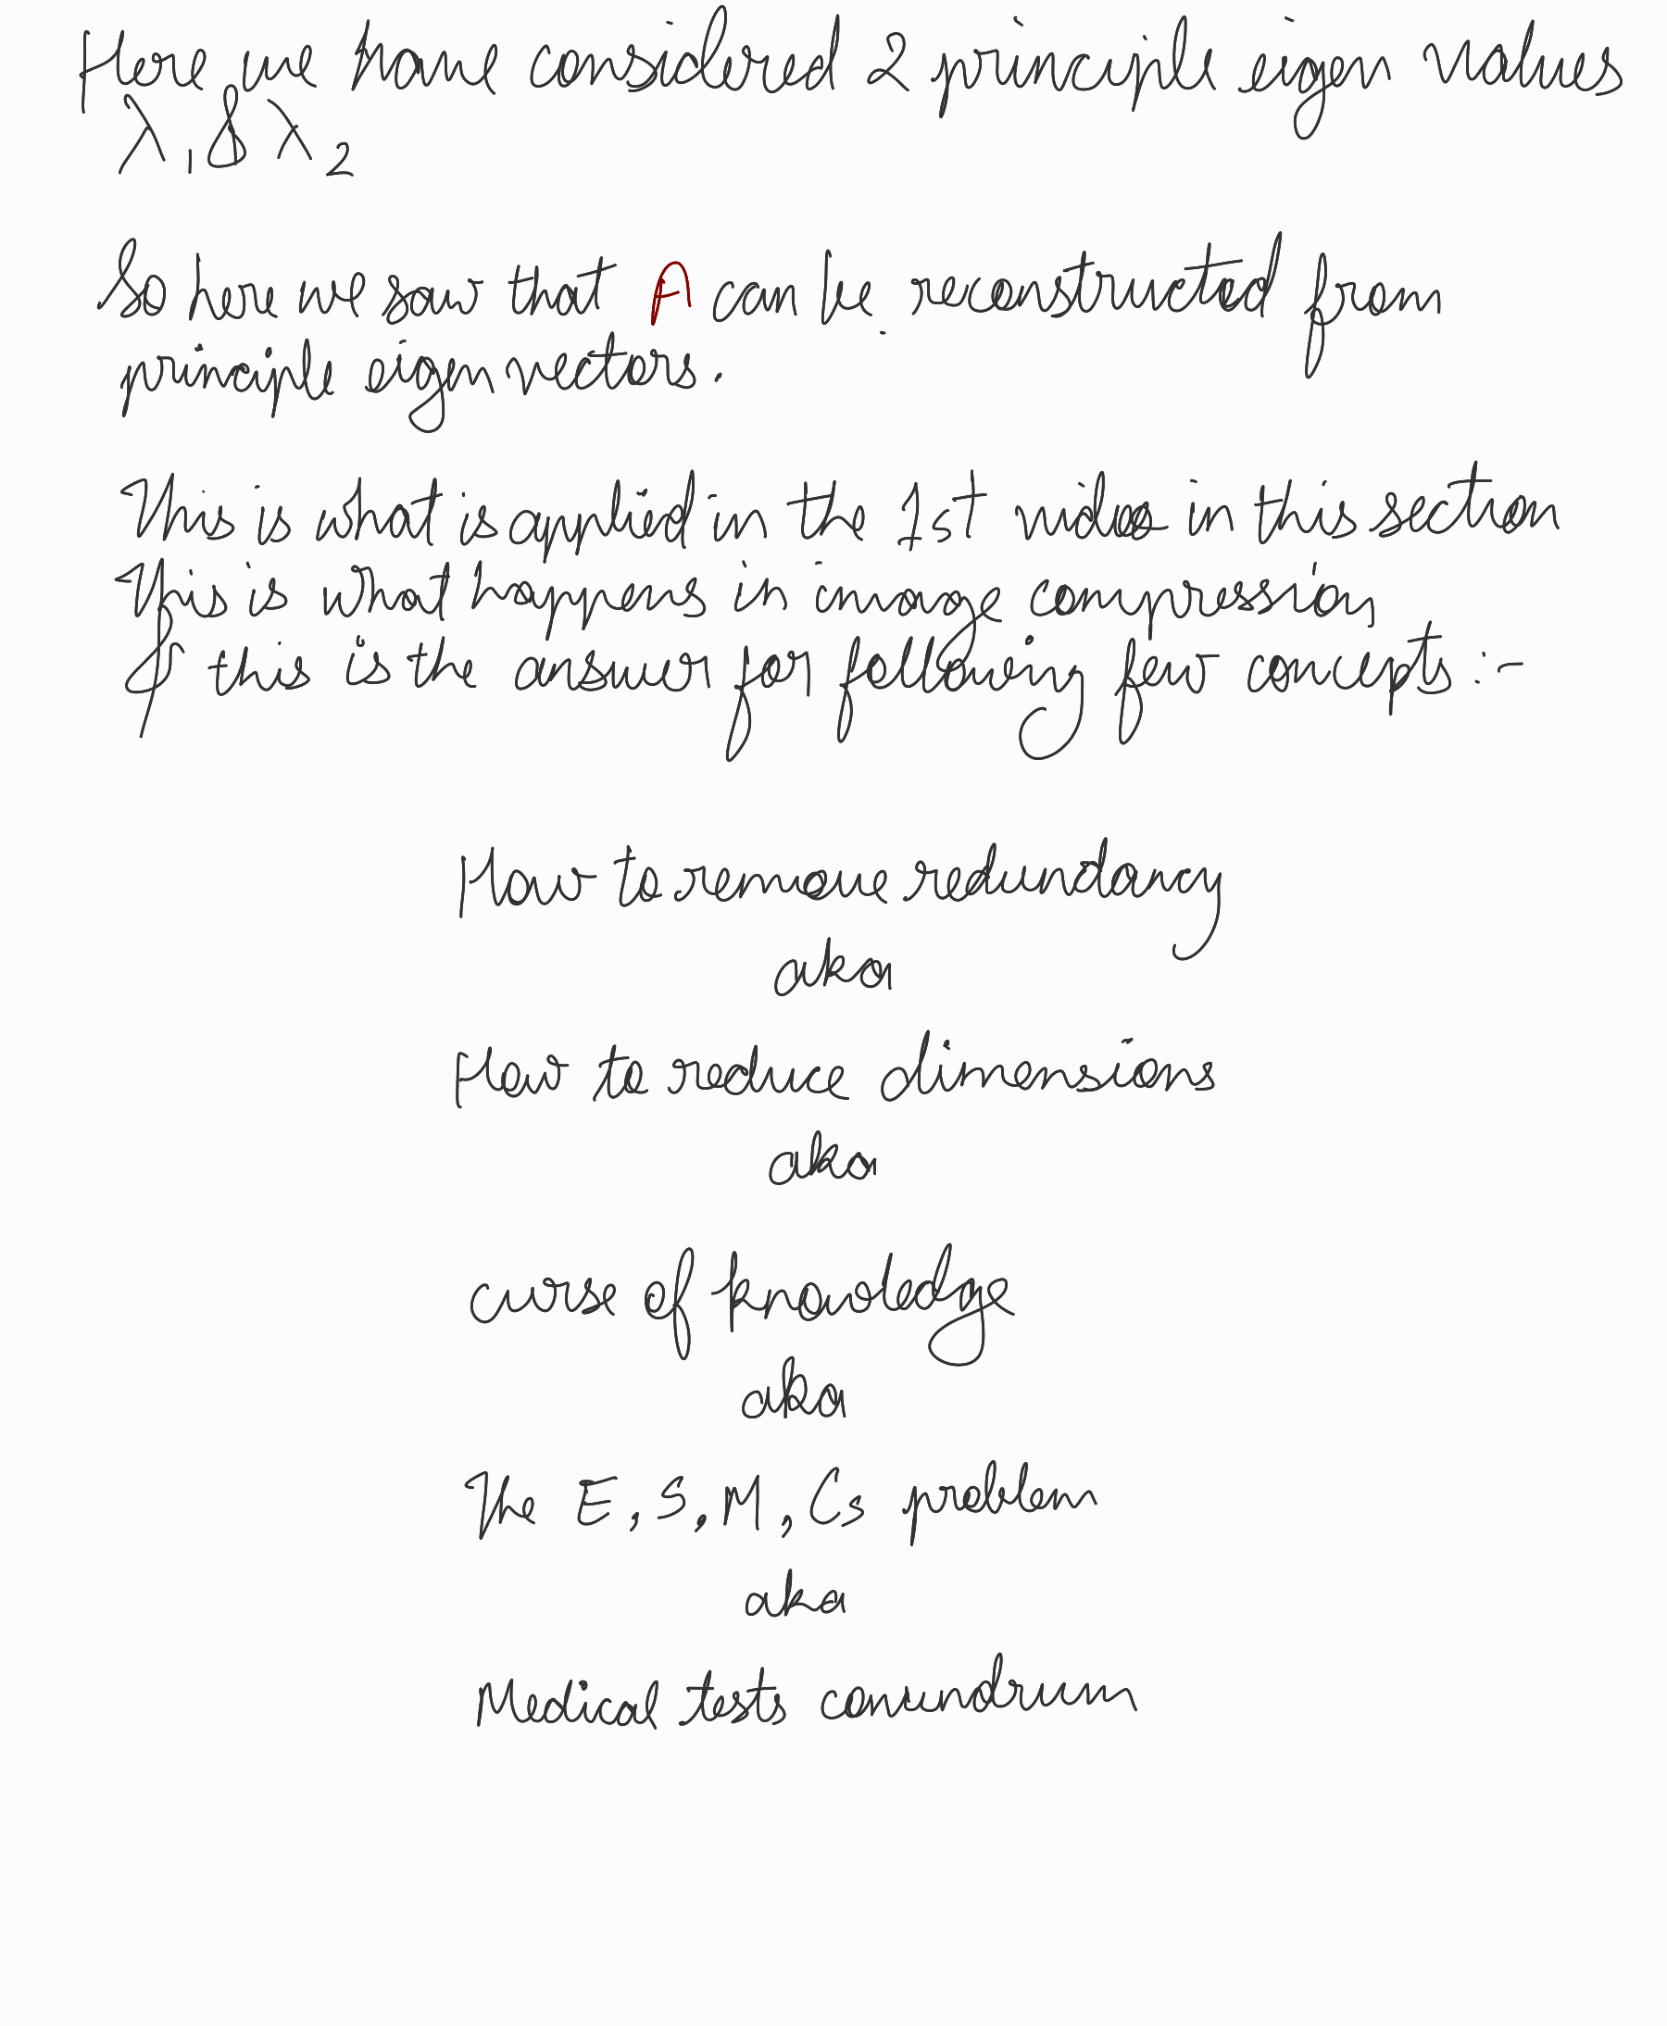 Here we have considered 2 principle eigen values
λ1 & λ2
So here we saw that A can be reconstructed from
principle eigen vectors.
This is what is applied in the 1st video in this section
This is what happens in image compression,
& this is the answer for following few concepts :-
How to remove redundancy
aka
How to reduce dimensions
aka
curse of knowledge
aka
The E, S, M, Cs problem
aka
Medical tests conundrum